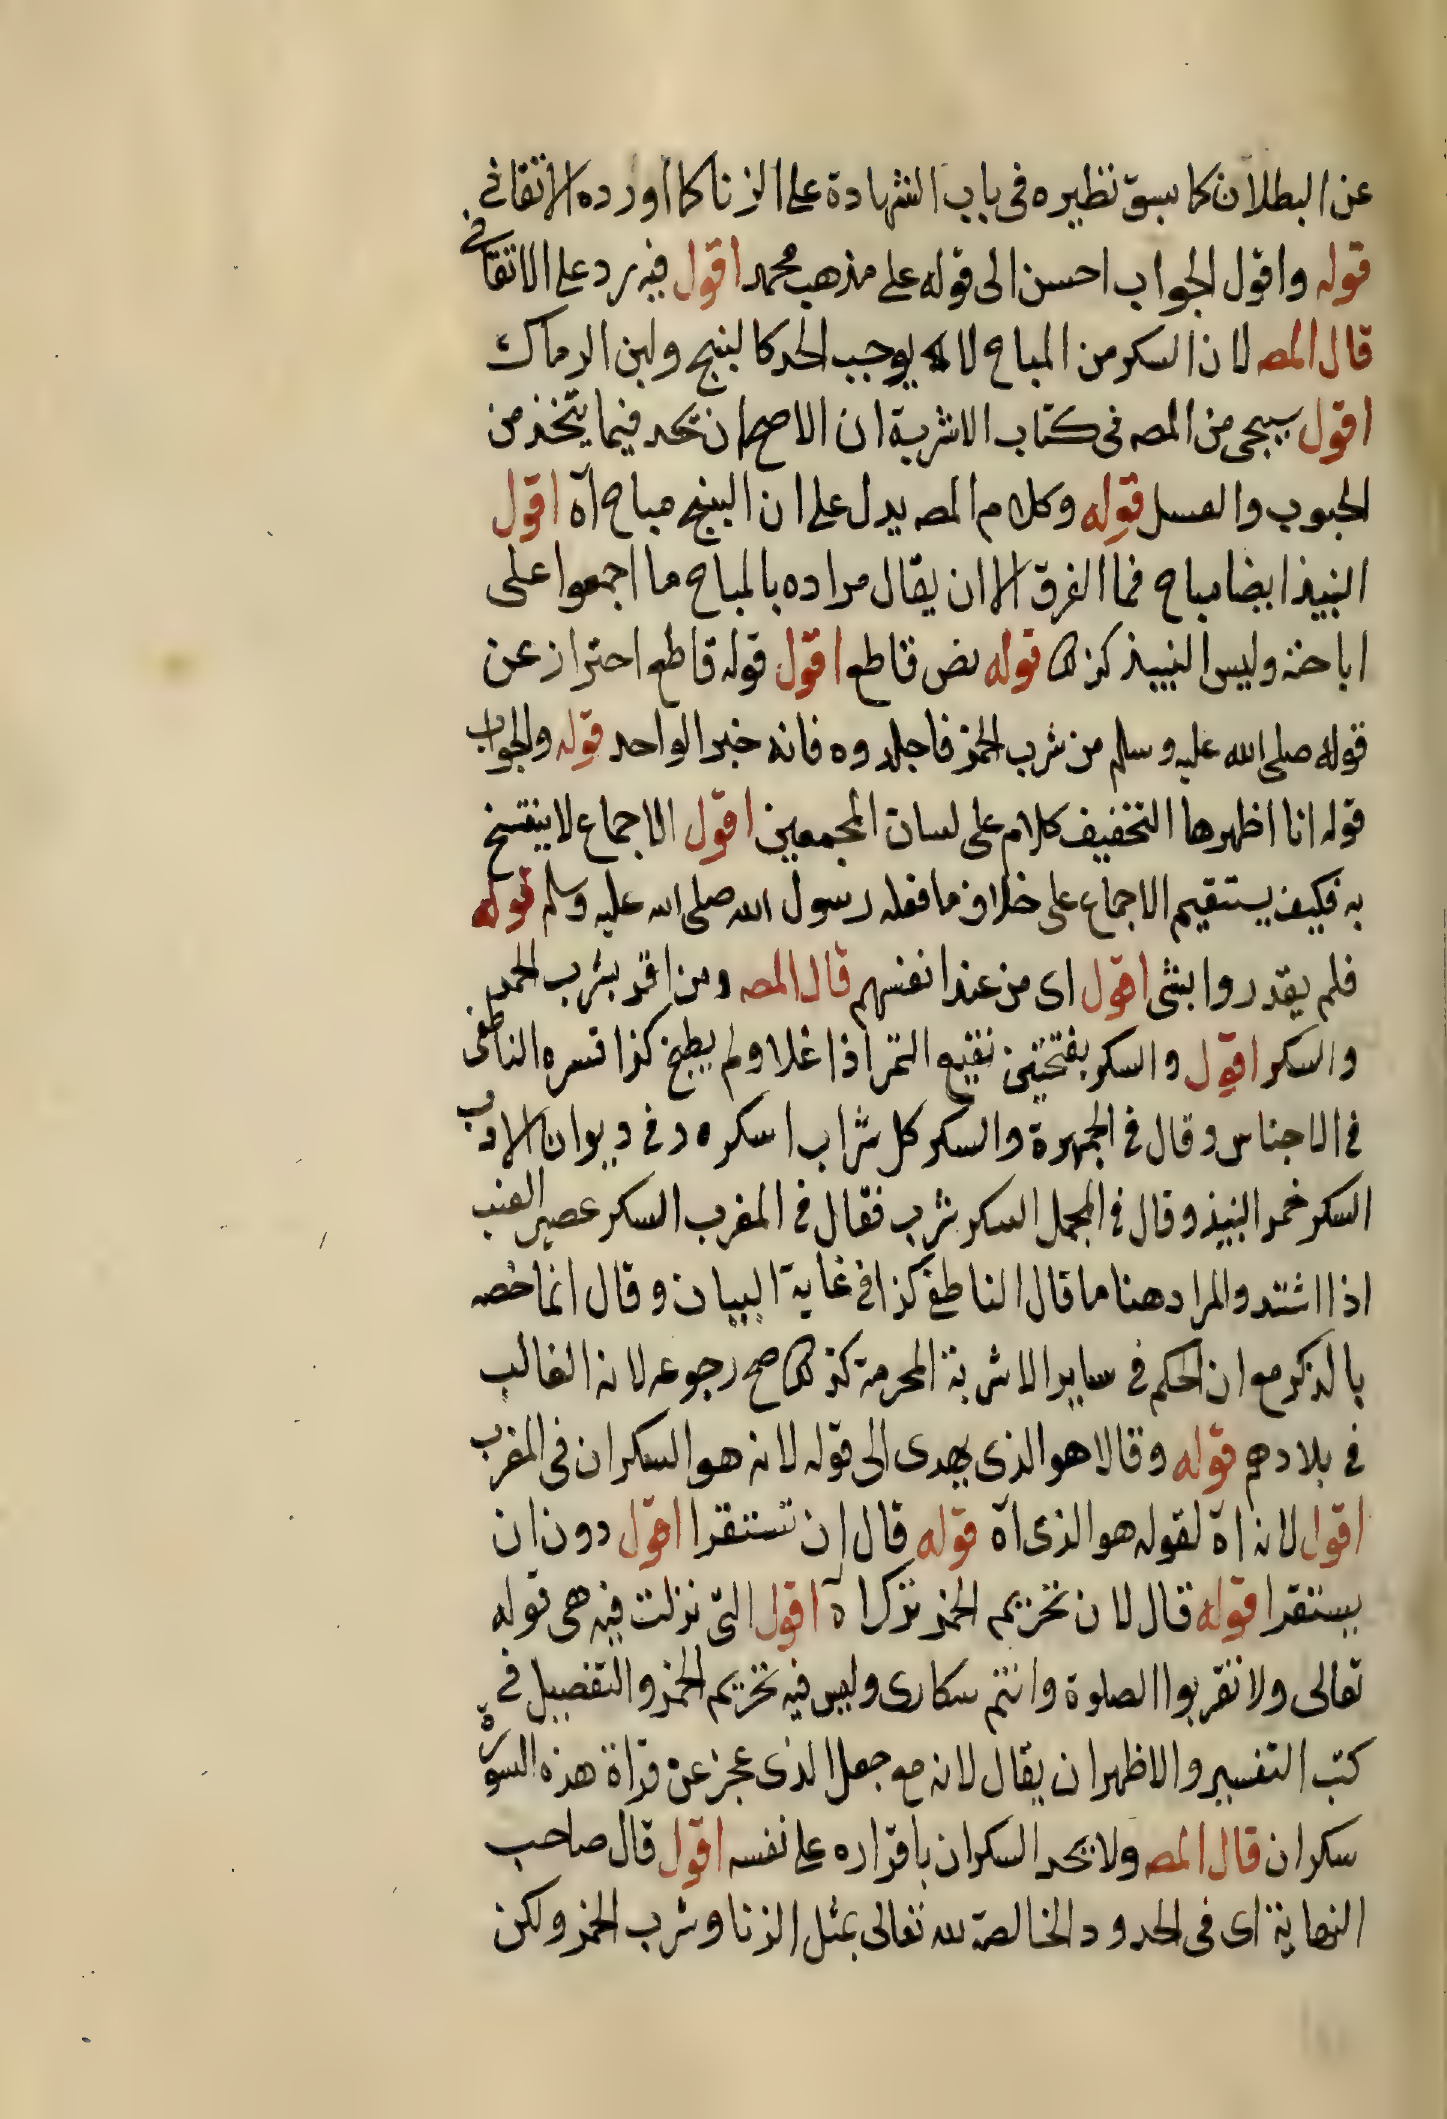 عن البطلان كما سبق نظيره فى باب الشهادة على الزنا كما اورده الاتقانى
قوله واقول الجواب احسن الى قوله على مذهب محمد اقول فيه رد على الاتقانى
قال المصه لان السكر من المباح لا يوجب الحد كالبنج ولبن الرماك
اقول سيجى من المصه فى كتاب الاشربة ان الاصح ان يحد فيما يتخذ من
الحبوب والعسل قوله وكلام المصه يدل على ان البنج مباح آه اقول
النبيذ ايضا مباح فما الفرق الا ان يقال مراده بالمباح ما اجمعوا على
اباحته وليس النبيذ كذلك قوله نص قاطع اقول قوله قاطع احتراز عن
قوله صلى الله عليه وسلم من شرب الخمر فاجلدوه فانه خبر الواحد قوله والجواب
قوله انا اظهرها التخفيف كلام على لسان المجمعين اقول الاجماع لا ينتسخ
به فكيف يستقيم الاجماع على خلاف ما فعله رسول الله صلى الله عليه وسلم قوله
فلم يقدروا بشى اقول اى من عند انفسهم قال المصه ومن اقر بشرب الخمر
والسكر اقول والسكر بفتحتين نقيع التمر اذا غلا ولم يطبخ كذا فسره الناطفى
فى الاجناس وقال فى الجمهرة والسكر كل شراب اسكره وفى ديوان الادب
السكر خمر النبيذ وقال فى المجمل السكر شرب فقال فى المغرب السكر عصير العنب
اذا اشتد والمراد هنا ما قال الناطفى كذا فى غاية البيان وقال انما خصه
بالذكر مع ان الحكم فى ساير الاشربة المحرمة كذلك صح رجوعه لانه الغالب
فى بلادهم قوله وقالا هو الذى يهدى الى قوله لانه هو السكران فى المغرب
اقول لانه اه لقوله هو الذى آه قوله قال ان تستقرا اقول دون ان
يستقرا قوله قال لان تحريم الخمر نزل آه اقول التى نزلت فيه هى قوله
تعالى ولا تقربوا الصلوة وانتم سكارى وليس فيه تحريم الخمر والتفصيل فى
كتب التفسير والاظهر ان يقال لانه مع جعل الذى عجز عن قراة هذه السورة
سكران قال المصه ولا يحد السكران باقراره على نفسه اقول قال صاحب
النهاية اى فى الحدود الخالصة لله تعالى بمثل الزنا وشرب الخمر ولكن